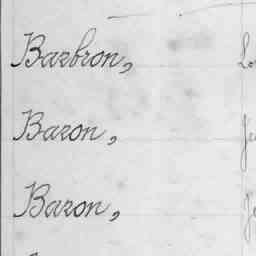 Barbron,
Baron,
Baron,